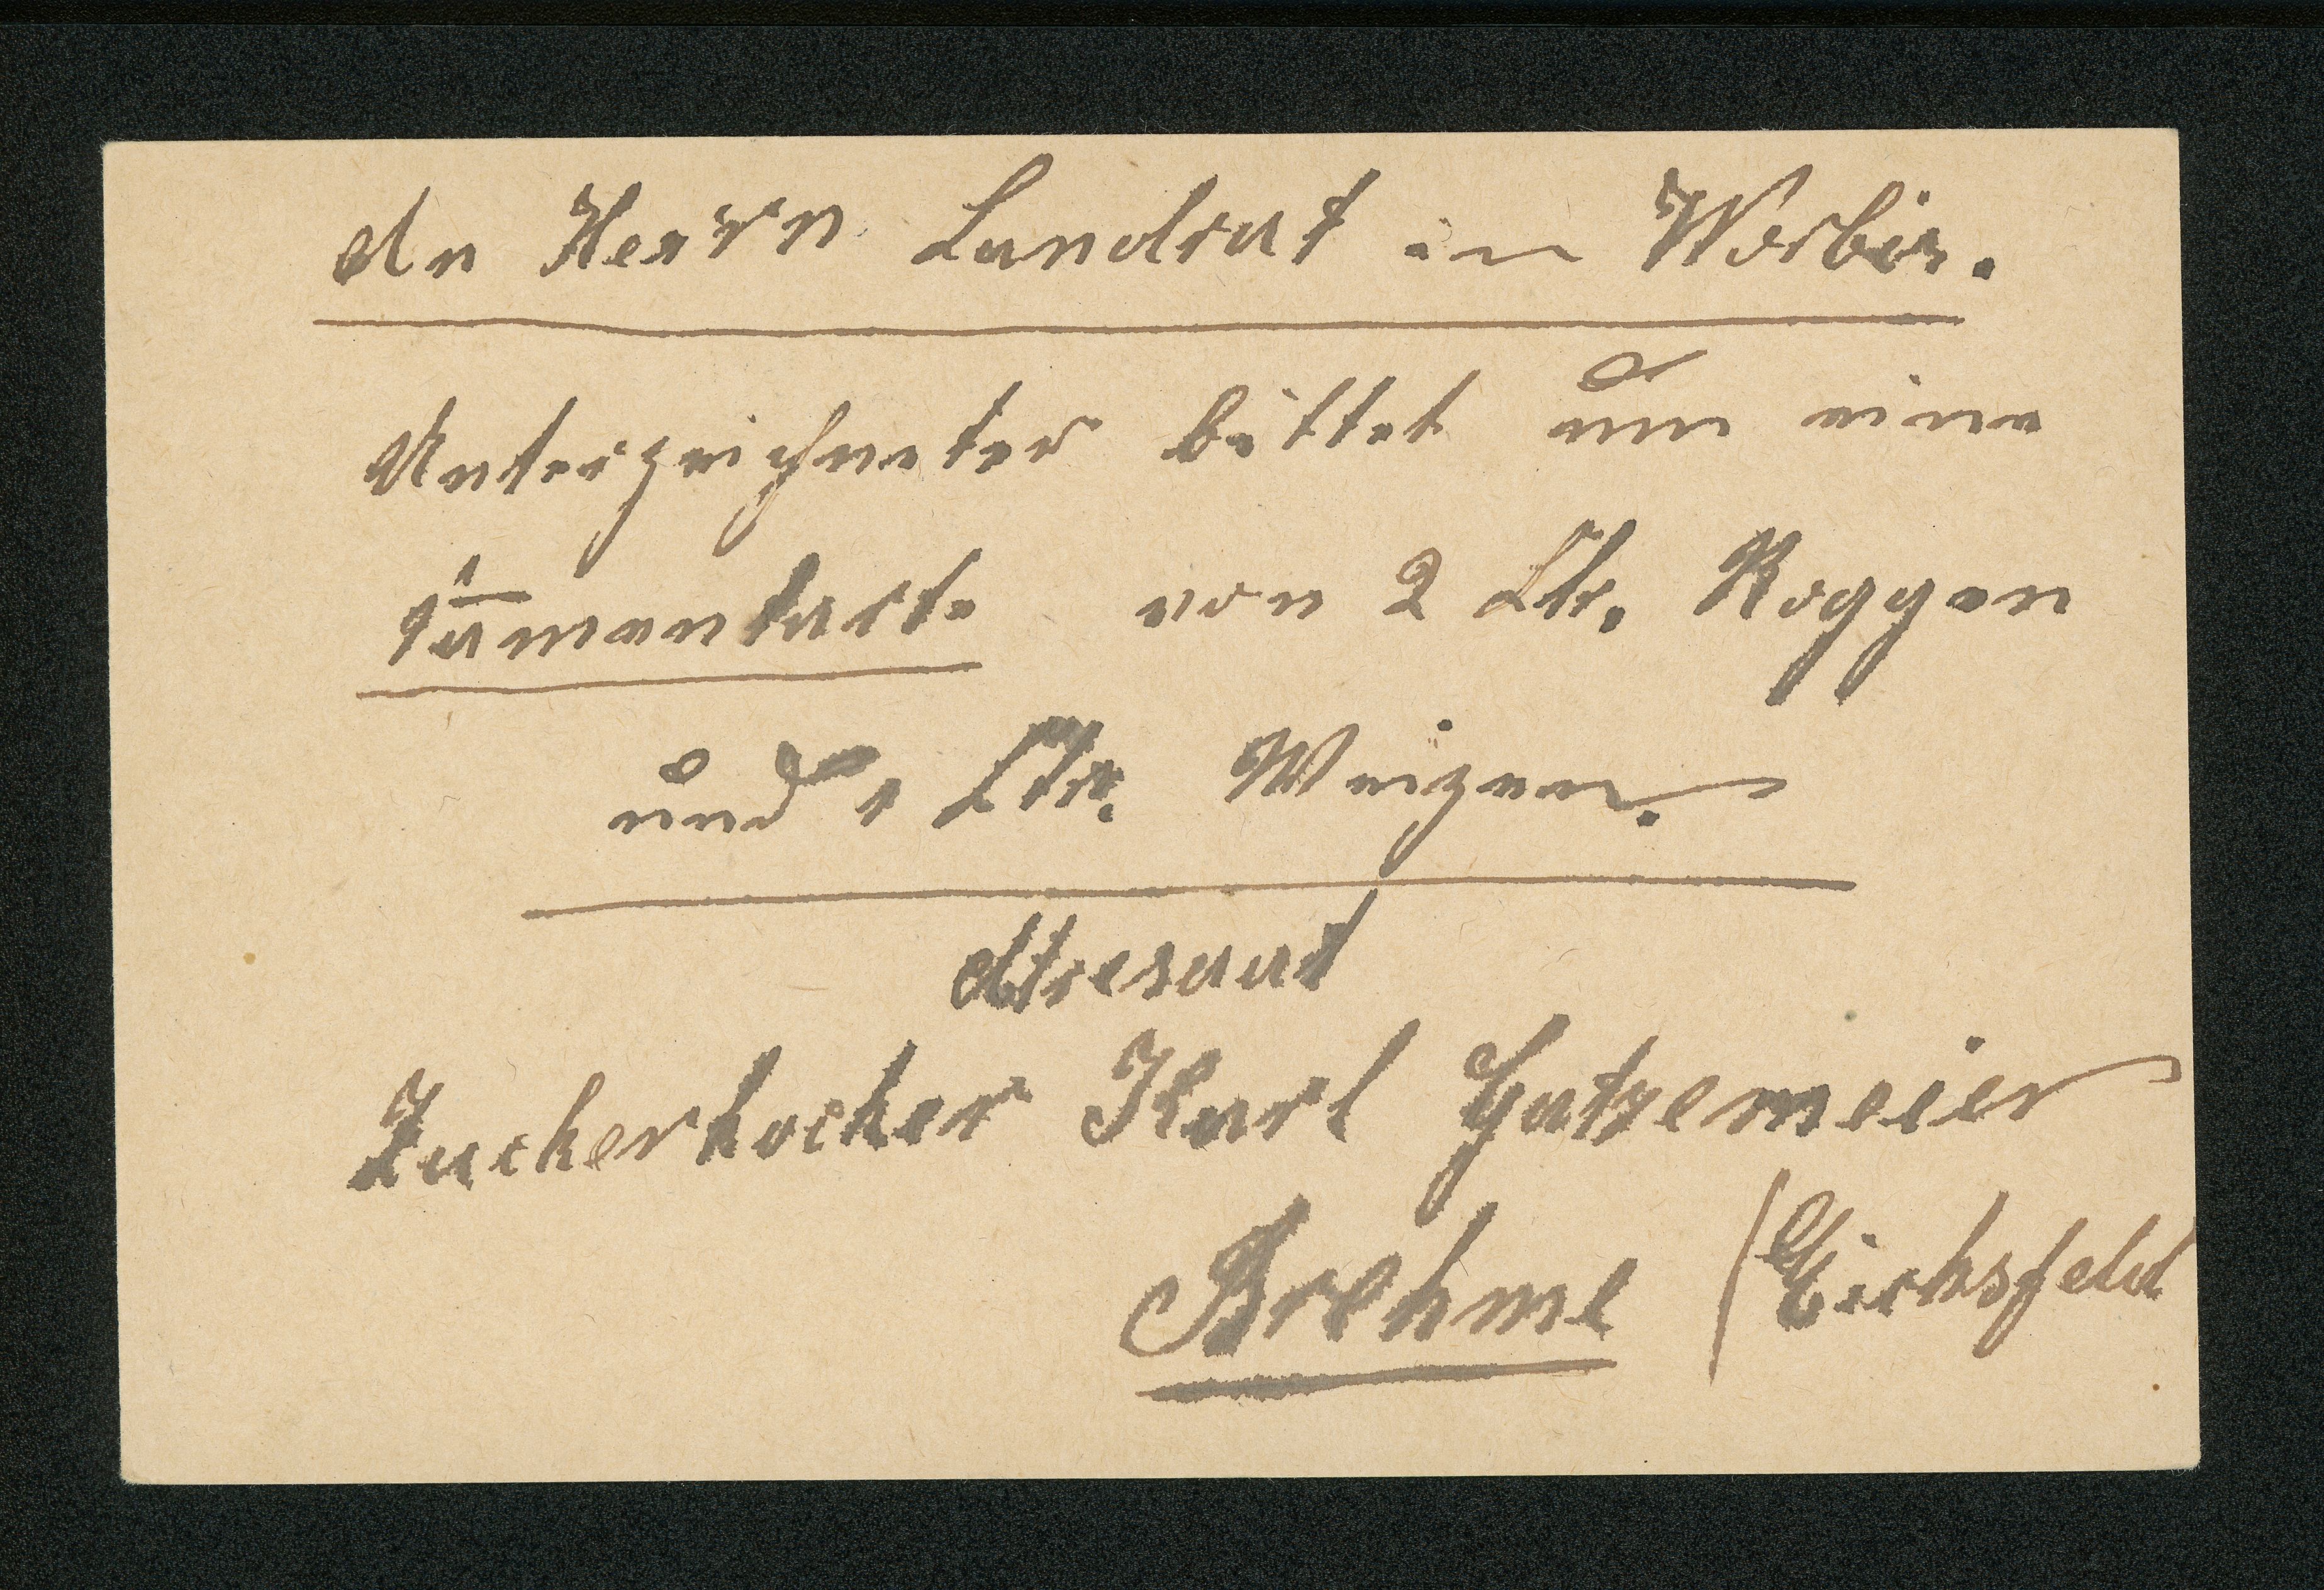 An Herrn Landrat in Worbis.
Unterzeichneter bittet um eine
Samenkarte von 2 Ztr. Roggen
und 1 Ztr. Weizen.
Atresant
Zuckerkocher Karl Gatzemeier
Brehme / Eichsfeld